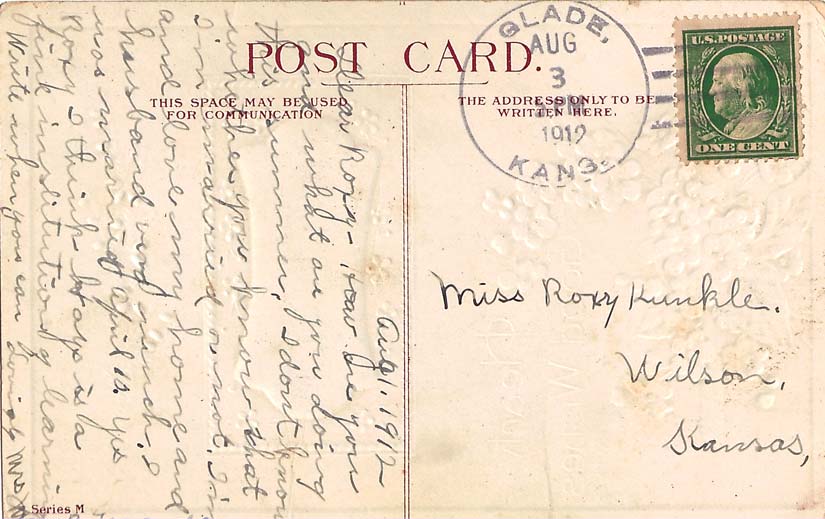 POST CARD.
THIS SPACE MAY BE USED
FOR COMMUNICATION
THE ADDRESS ONLY TO BE
WRITTEN HERE.
GLADE,
AUG
3
PM
1912
KANS.
U.S. POSTAGE
ONE CENT
Aug 1, 1912
Dear Roxy- How are you
and what are you doing
this summer. I don't know
whether you know that
I'm married or not. I'm
and love my home and
husband very much. I
was married April 12. Yes
Roxy I think Hays is a
fine institution of learning
Write when you can Mrs
Miss Roxy Kunkle.
Wilson,
Kansas,
Series M